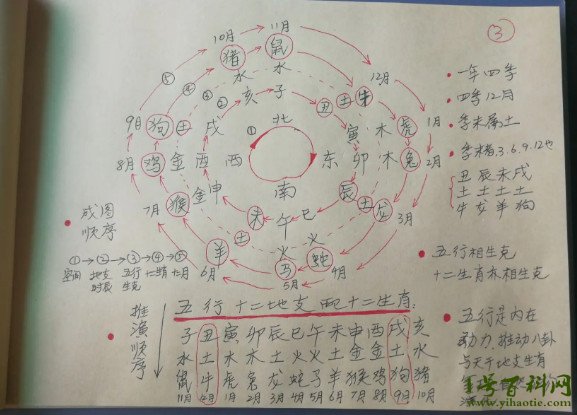 ③
10月 11月
猪 鼠
水 水
⑤ ④ ③ ②
亥 子
12月
丑 土 牛
9月 狗 土 戌
北
①
寅 木 虎 1月
8月 鸡 金 酉 西
东 卯 木 兔 2月
7月 猴 金 申
南
辰 土 龙 3月
未 午 巳
土 火 火
羊 马 蛇
6月 5月 4月
一年四季
四季12月
季末属土
季末指3.6.9.12也
丑 辰 未 戌
土 土 土 土
牛 龙 羊 狗
五行相生克
十二生肖亦相生克
五行是内在
动力.推动八卦
与天干地支生肖
成图
顺序
①→②→③→④→⑤
空间 地支 五行 十二 十二月
时辰 生克 生肖
推演顺序
五行十二地支配十二生肖
子 丑 寅 卯 辰 巳 午 未 申 酉 戌 亥
水 土 木 木 土 火 火 土 金 金 土 水
鼠 牛 虎 兔 龙 蛇 马 羊 猴 鸡 狗 猪
11月 12月 1月 2月 3月 4月 5月 6月 7月 8月 9月 10月
学百科网
www.yihaotie.com